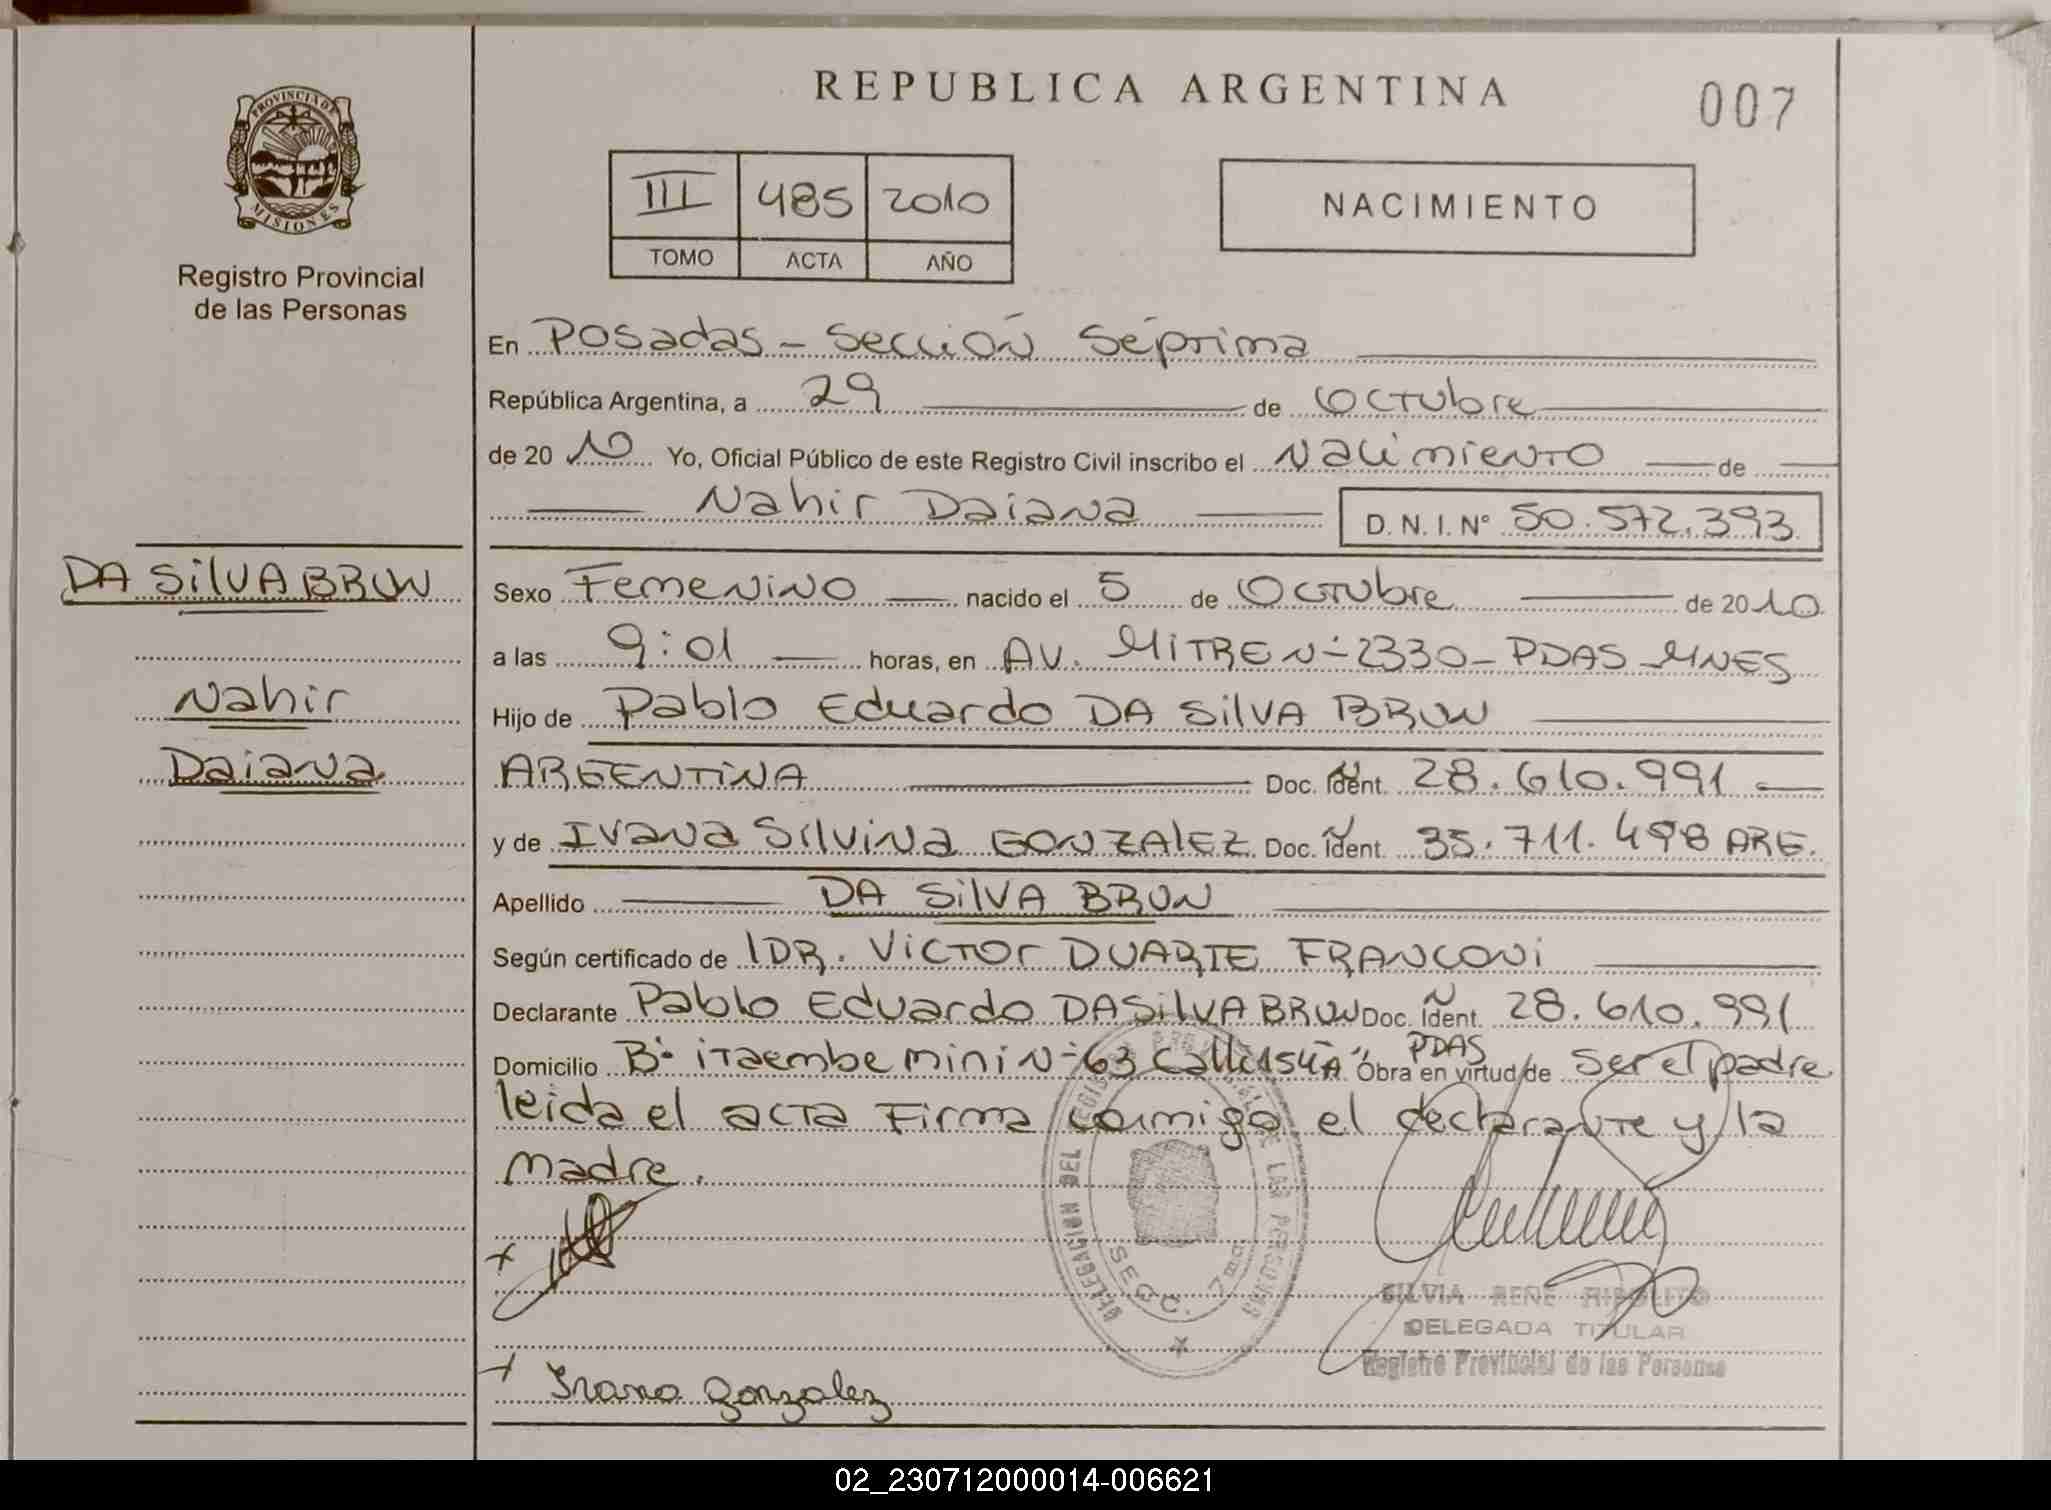 REPUBLICA ARGENTINA
007
PROVINCIA DE
MISIONES
Registro Provincial
de las Personas
III 485 2010
TOMO ACTA AÑO
NACIMIENTO
En Posadas - Sección Séptima
República Argentina, a 29 de Octubre
de 20 10 Yo, Oficial Público de este Registro Civil inscribo el Nacimiento de
Nahir Daiana D. N. I. Nº 50.572.393
DA SilVA BRUN
Nahir
Daiana
Sexo Femenino nacido el 5 de Octubre de 2010
a las 9:01 horas, en AV. MITRE N- 2330 - PDAS MNES
Hijo de Pablo Eduardo DA SilVA BRUN
ARGENTINA Doc. Ident. 28.610.991
y de Ivana Silvina GONZALEZ Doc. Ident. 35.711.498 ARG.
Apellido DA SilVA BRUN
Según certificado de DR. Victor DUARTE FRANCONi
Declarante Pablo Eduardo DA SilVA BRUN Doc. Ident. 28.610.991
Domicilio Bº itaembe mini Nº 63 Calle 154 "A" PDAS Obra en virtud de Ser el padre
leida el acta Firma conmigo el declarante y la
madre.
DELEGACION DEL REGISTRO PROVINCIAL DE LAS PERSONAS
SECC. 7ma
SILVIA RENE HIPOLITO
DELEGADA TITULAR
Registro Provincial de las Personas
Ivana Gonzalez
02_230712000014-006621